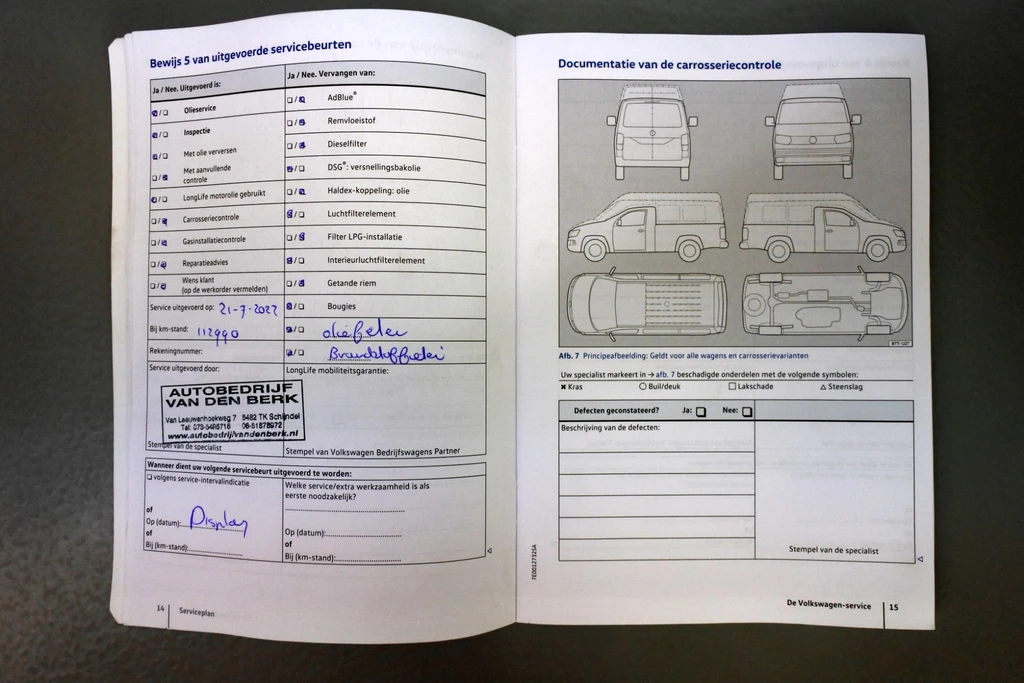 Bewijs 5 van uitgevoerde servicebeurten
Ja / Nee. Uitgevoerd is:
Ja / Nee. Vervangen van:
Olieservice
AdBlue®
Inspectie
Remvloeistof
Met olie verversen
Dieselfilter
Met aanvullende
controle
DSG®: versnellingsbakolie
LongLife motorolie gebruikt
Haldex-koppeling: olie
Carrosseriecontrole
Luchtfilterelement
Gasinstallatiecontrole
Filter LPG-installatie
Reparatieadvies
Interieurluchtfilterelement
Wens klant
(op de werkorder vermelden)
Getande riem
Service uitgevoerd op: 21-7-2022
Bougies
Bij km-stand: 112990
oliefilter
Rekeningnummer:
Brandstoffilter
Service uitgevoerd door:
LongLife mobiliteitsgarantie:
AUTOBEDRIJF
VAN DEN BERK
Van Leeuwenhoekweg 7 5482 TK Schijndel
Tel: 073-5496716 06-51878972
www.autobedrijfvandenberk.nl
Stempel van de specialist
Stempel van Volkswagen Bedrijfswagens Partner
Wanneer dient uw volgende servicebeurt uitgevoerd te worden:
volgens service-intervalindicatie
Welke service/extra werkzaamheid is als
eerste noodzakelijk?
of
Op (datum): Display
Op (datum):
of
of
Bij (km-stand):
Bij (km-stand):
14 Serviceplan
Documentatie van de carrosseriecontrole
B7T-1227
Afb. 7 Principeafbeelding: Geldt voor alle wagens en carrosserievarianten
Uw specialist markeert in → afb. 7 beschadigde onderdelen met de volgende symbolen:
✖ Kras ○ Buil/deuk □ Lakschade △ Steenslag
Defecten geconstateerd? Ja: Nee:
Beschrijving van de defecten:
Stempel van de specialist
7E0012732SA
De Volkswagen-service 15